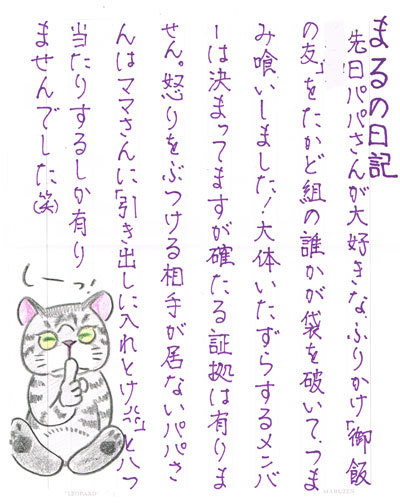 まるの日記
先日パパさんが大好きなふりかけ「御飯
の友」をたかど組の誰かが袋を破いて、つま
み喰いしました!大体いたずらするメンバ
ーは決まってますが確たる証拠は有りま
せん。怒りをぶつける相手が居ないパパさ
んはママさんに「引き出しに入れとけ💢」と八つ
当たりするしか有り
ませんでした(笑)
しーっ!